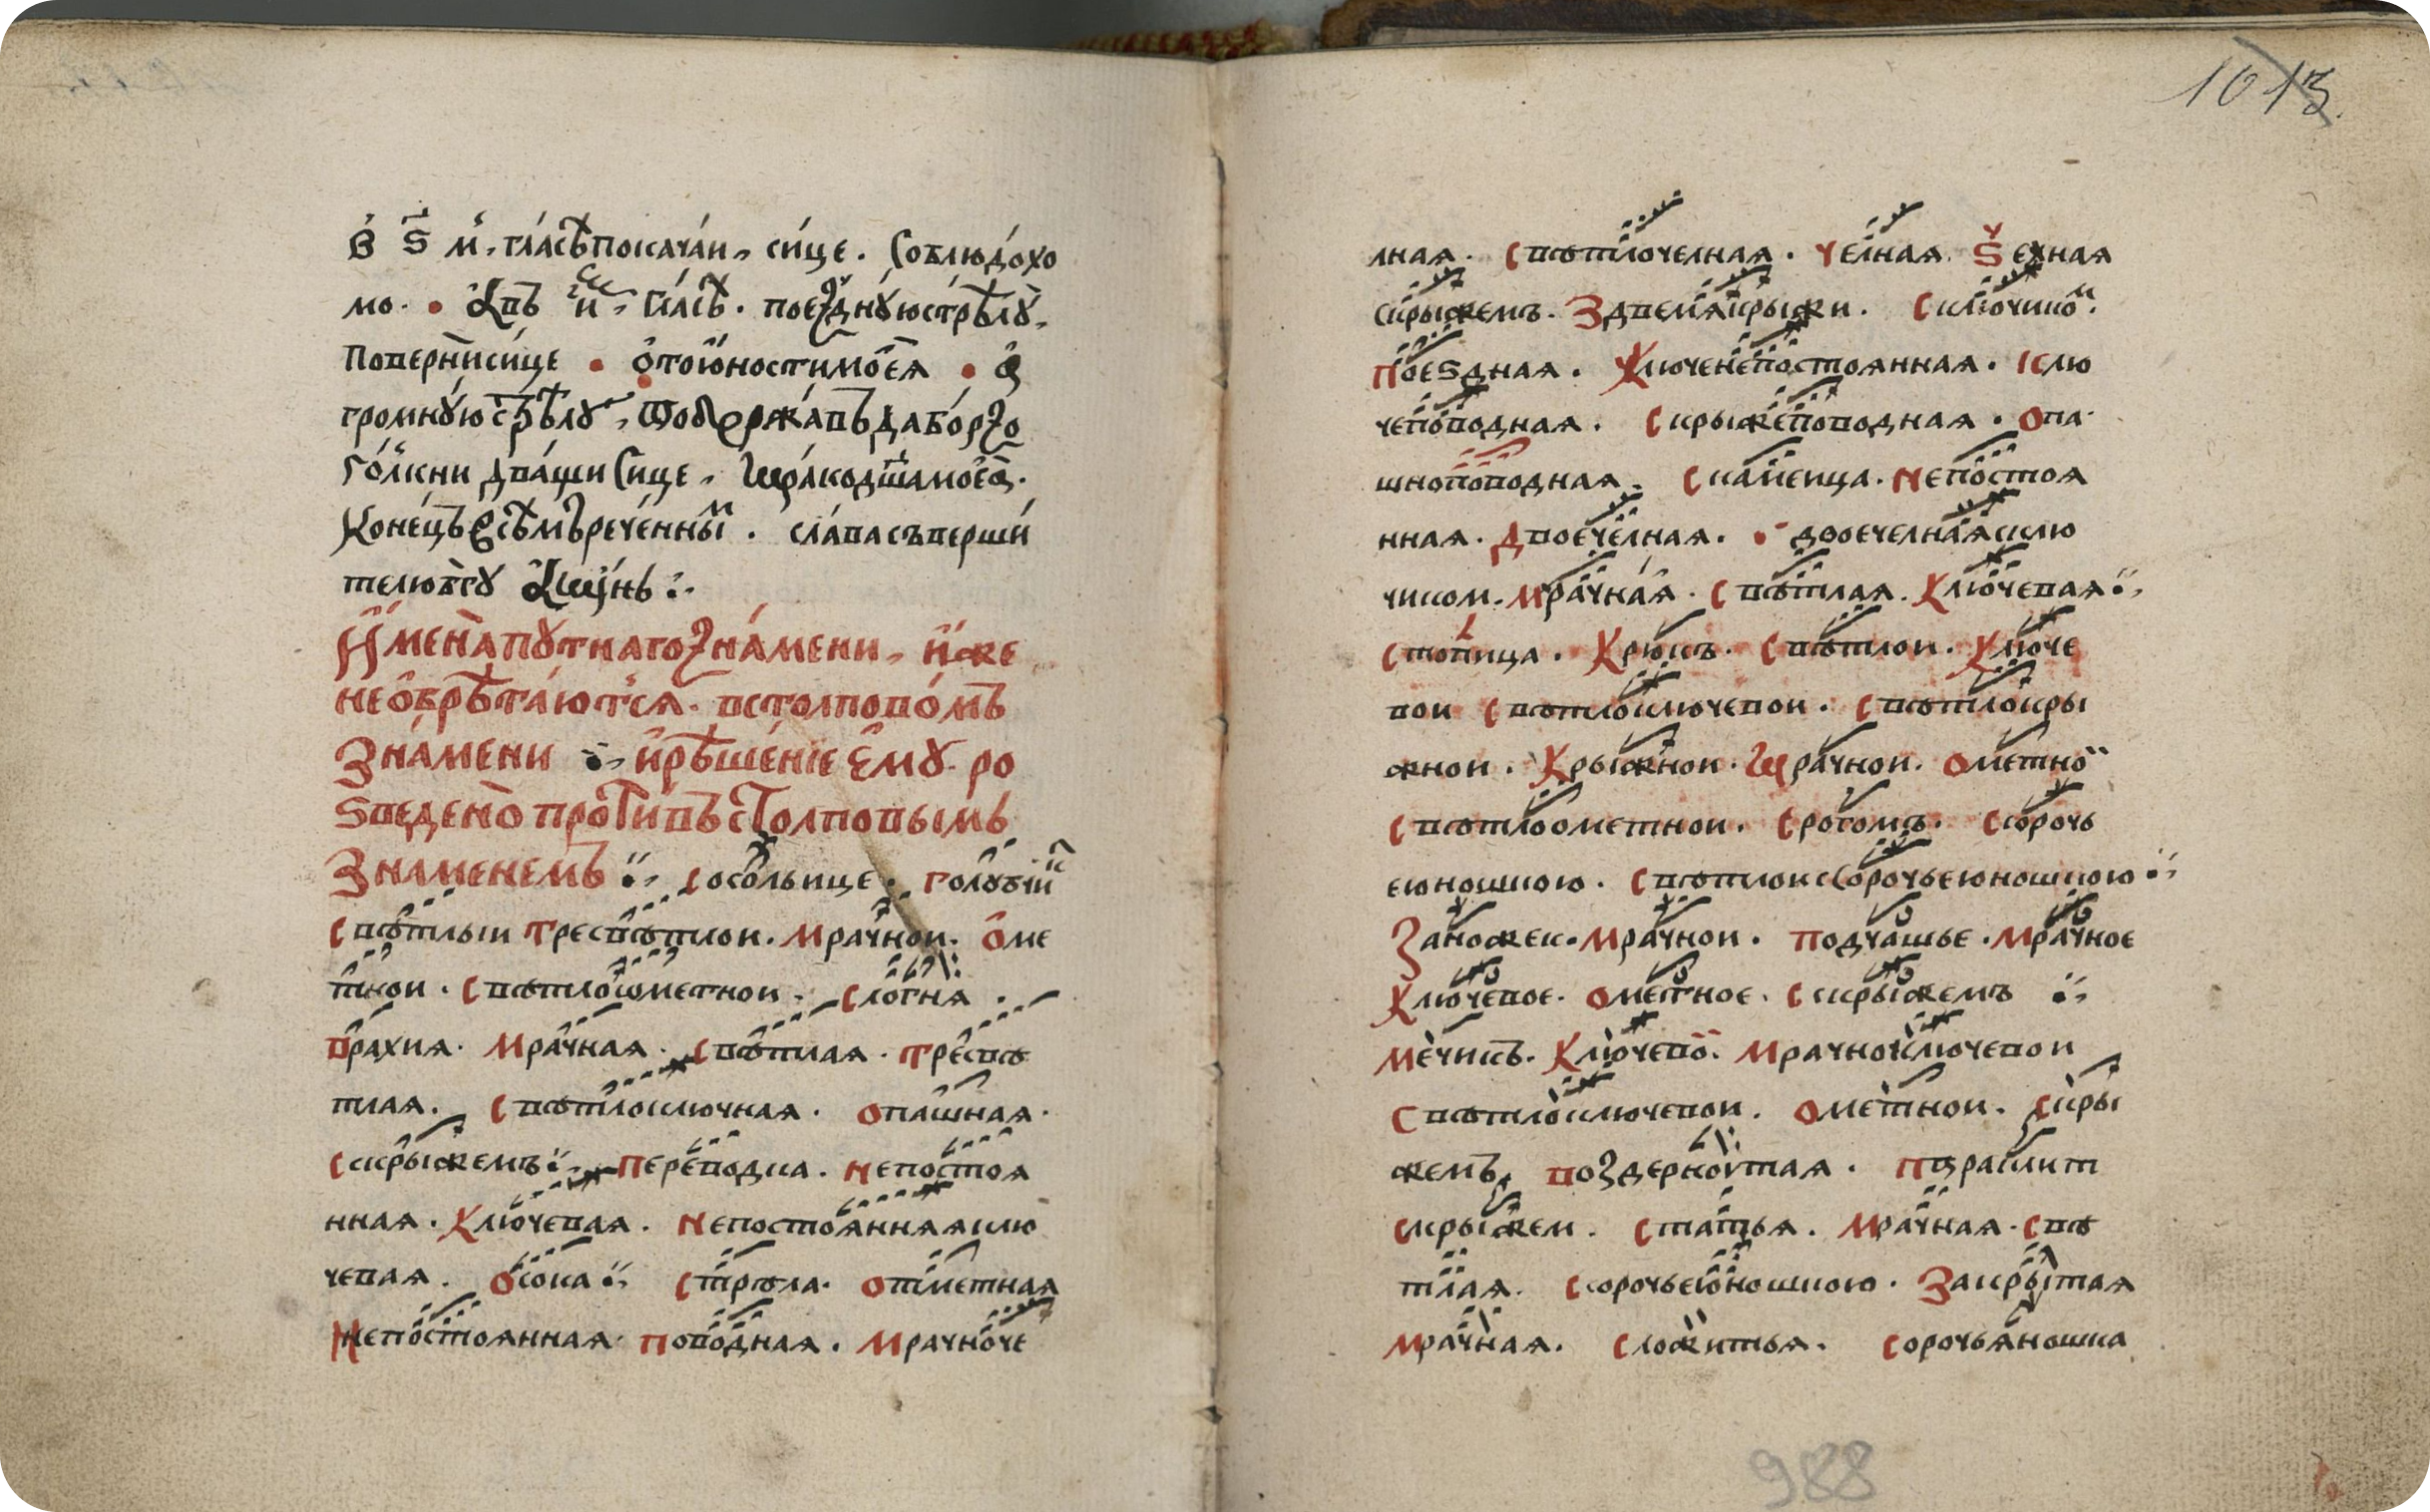 в ѕ м. гласѣ покачаи, сице. соблюдохо
мо. а въ и, гласѣ. поезднꙋю стрѣлꙋ,
поверни сице • ѿ юности моея •
громнꙋю стрѣлꙋ, подержавъ да борзо
голкни дващи сице, мракод
Конецъ всѣмъ реченныⷨ. слава съверши
телю бг҃ꙋ аминь
Имена пꙋтнаго знамени, иже
не обрѣтаются. в столповомъ
знамени и рѣшение емꙋ. ро
ѕведено противъ столповымъ
знаменемъ сокольице. голꙋбчикъ
свѣтлыи тресвѣтлои. мрачнои. оме
тнои. свѣтлоѡметнои. слогня.
врахия. мрачная. свѣтлая. тресвѣ
тлая. свѣтлоключная. опашная.
скрыжемъ переводка. непостоя
нная. ключевая. непостоянная клю
чевая. осока стрѣла. отметная
непостоянная поводная. мрачноче
лная. свѣтлочелная. челная ѕехная
скрыжемъ. здвемя крыжи. сключикоⷨ.
поеѕдная. ключенепостоянная. клю
чеповодная. скрыжеповодная. опа
шноповодная. скамеица. непостоя
нная. двоечелная. двоечелная склю
чиком. мрачная. свѣтлая. ключевая
стопица. крюкъ. свѣтлои. ключе
вои свѣтлоключевои. свѣтлокры
жнои. крыжнои. мрачнои. ометнои
свѣтлоометнои. срогомъ. ссорочь
еюношкою. свѣтлои ссорочьеюношкою
заножек. мрачнои. подчашье. мрачное
ключевое. ометное. скрыжемъ
мечикъ. ключевои. мрачноключевои
свѣтлоключевои. ометнои. скры
жемъ, воздернотая. параклит
скрыжем. статья. мрачная. свѣ
тлая. ссорочьеюношкою. закрытая
мрачная. сложитья. сорочья ношка
988